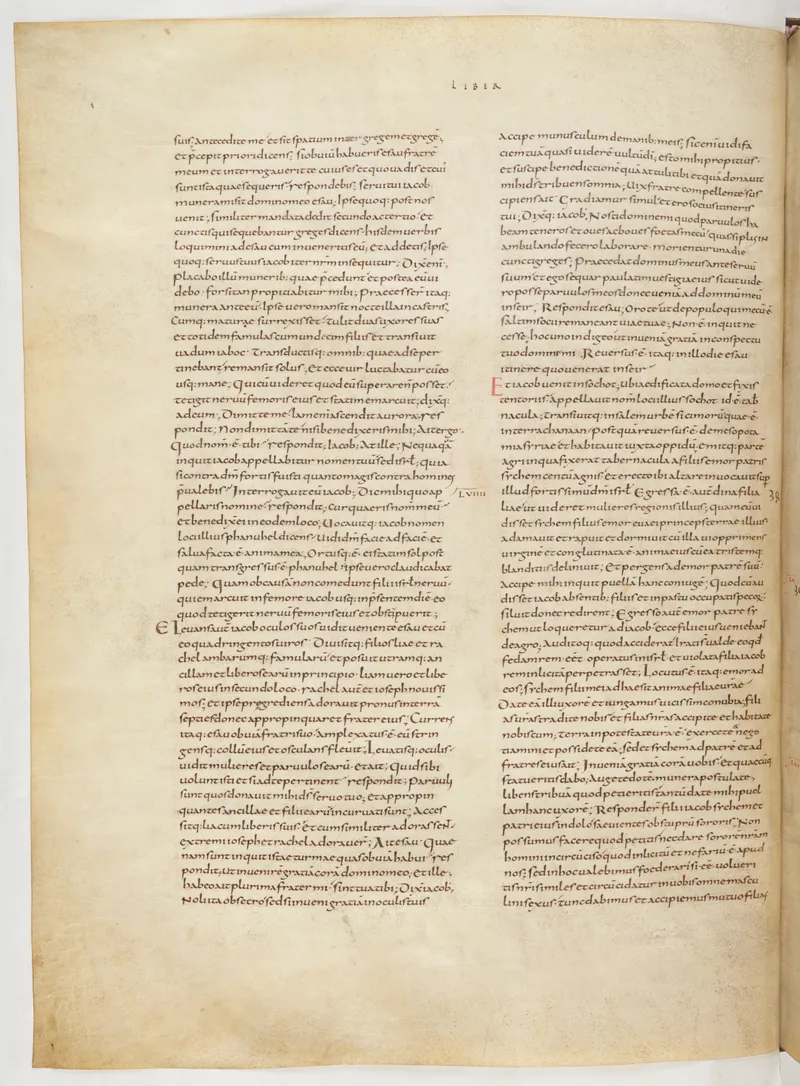 LIBER
suis; Antecedite me et sit spatium inter gregem et gregē,
et p̄cepit priori dicens; si obuiū habueris esau fratrē
meum et interrogauerit te cuius es et quo uadis et cui
sunt ista quae sequeris; respondebis; serui tui iacob
munera misit domino meo esau; Ipse quoq; post nos
uenit; similiter mandata dedit secundo ac tertio et
cunctis qui sequebantur greges dicens; hisdem uerbis
loquimini ad esau cum inueneritis eū; Et addetis; Ipse
quoq; seruus tuus iacob iter nrm̄ insequitur; Dixit enī;
placabo illū munerib; quae p̄cedunt et postea eū ui
debo forsitan propitiabitur mihi; Praecesser̄ itaq;
munera ante eū Ipse uero mansit nocte illa in castris;
Cumq; mature surrexisset tulit duas uxores suas
et totidem famulas cum undecim filiis et transiuit
uadum iaboc Transductisq; omnib; quae ad se per
tinebant remansit solus, Et ecce uir luctabatur cū eo
usq; mane; Qui cū uideret quod eū superare ñ posset
tetigit neruū femoris eius et statim emarcuit; dixq;
ad eum; Dimitte me iam enī ascendit aurora; res
pondit; Non dimittā te nisi benedixeris mihi; Ait ergo
Quod nom̄ ē tibi respondit; Iacob; At ille; Nequaquā
inquit iacob appellabitur nomen tuū sed isrl; quia
si contra dm̄ fortis fuisti quanto magis contra homines
p̄ualebis; Interrogauit eū iacob; Dic mihi quo ap LVIIII
pellaris nomine respondit; cur quaeris nomen meū
et benedixit ei in eodem loco; Uocauitq; iacob nomen
loci illius phanuhel dicens; Uidi dm̄ facie ad faciē et
salua facta ē anima mea; Ortusq; ē ei statim sol post
quam transgressus ē phanuhel ipse uero claudicabat
pede; Quam ob causā non comedunt filii isrl neruū
qui emarcuit in femore iacob usq; in p̄sentem diē eo
quod tetigerit neruū femoris eius et obstipuerit;
Eleuans aut̄ iacob oculos suos uidit uenientē esau et cū
eo quadringentos uiros Diuisitq; filios liae et ra
chel ambarumq; famularū et posuit utramq; an
cillam et liberos earū in principio liam uero et libe
ros eius in secundo loco rachel aut̄ et ioseph nouissi
mos; et ipse p̄grediens adorauit pronus in terrā
septies donec appropinquaret frater eius; Currens
itaq; esau obuiā fratri suo amplexatus ē eū strin
gensq; collū eius et osculans fleuit; Leuatisq; oculis
uidit mulieres et paruulos earū et ait; Quid sibi
uolunt isti et si ad te pertinent respondit; Paruuli
sunt quos donauit mihi ds seruo tuo; et appropin
quantes ancillae et filii earū incuruati sunt; Acces
sitq; lia cum liberis suis Et cum similiter adorassent
extremi ioseph et rachel adorauer̄; Ait esau Quae
nam sunt inquit istae turmae quas obuiā habui res
pondit; Ut inuenirē gratiā corā domino meo; et ille;
habeo ait plurima frater mi sint tua tibi; Dixit iacob,
Noli ita obsecro sed si inueni gratiā in oculis tuis
Accipe munusculum de manib; meis; sic enī uidi fa
ciem tuā quasi uiderē uultū dī; esto mihi propitius
et suscipe benedictionē quā attuli tibi et quā donauit
mihi ds tribuens omnia; Uix fratre compellente sus
cipiens ait Gradiamur simul et ero socius itineris
tui; Dixq; iacob; Nosti domine mi quod paruulos ha
beam teneros et oues ac boues foetas mecū quas si plus in
ambulando fecero laborare morientur una die
cuncti greges; Praecedat dominus meus ante seruū
suum et ego sequar paulatim uestigia eius sicut uide
ro posse paruulos meos donec ueniā ad dominū meū
in seir; Respondit esau; Oro te ut de populo qui mecū ē
saltim socii remaneant uiae tuae; Non ē inquit ne
cesse; hoc uno indigeo ut inueniā gratiā in conspectu
tuo domine mi Reuersus ē itaq; in illo die esau
itinere quo uenerat in seir
Et iacob uenit in sochot; ubi aedificata domo et fixis
tentoriis Appellauit nom̄ loci illius sochot id ē tab
nacula; transiuitq; in salem urbē sicimorū quae ē
in terra chanaan postquā reuersus ē de mesopota
mia syriae et habitauit iuxta oppidū Emitq; partē
agri in qua fixerat tabernacula a filiis emor patris
sychem centū agnis et erecto ibi altare inuocauit sup
illud fortissimū dm̄ isrl Egressa ē aut̄ dina filia 38
liae ut uideret mulieres regionis illius; quam cū ui
disset sychem filius emor euaei princeps terrae illius
adamauit et rapuit et dormiuit cū illa ui opprimens
uirginē et conglutinata ē anima eius cū ea tristemq;
blanditiis deliniuit; Et pergens ad emor patrē suū
Accipe mihi inquit puellā hanc coniugē; Quod cū au
disset iacob absentib; filiis et in pastu occupatis pecorū
siluit donec redirent; Egresso aut̄ emor patre sy
chem ut loqueretur ad iacob ecce filii eius ueniebant
de agro; Auditoq; quod acciderat Irati s̄ ualde eo qd̄
fedam rem eēt operatus in isrl et uiolata filia iacob
rem inlicitā perpetrasset; Locutus ē itaq; emor ad
eos; sychem filii mei adhaesit anima filiae uestrae
Date eā illi uxorē et iungamus uicissim conubia; fili
as uras tradite nobis et filias nrās accipite et habitate
nobiscum; terra in potestate urā ē exercete nego
tiamini et possidete eā; sed et sychem ad patrē et ad
fratres eius ait; Inueniā gratiā corā uobis et quaecūq;
statueritis dabo; Augete dotē munera postulate;
libens tribuā quod petieritis tantū date mihi puel
lam hanc uxorē; Responder̄ filii iacob sychem et
patri eius in dolo saeuientes ob stuprū sororis; Non
possumus facere quod petitis nec dare sororem nrām
homini incircūciso quod inlicitū et nefariū ē apud
nos; sed in hoc ualebimus foederari si eē uolueri
tis nr̄i similes et circūcidatur in uobis omne mascu
lini sexus tunc dabimus et accipiemus mutuo filias